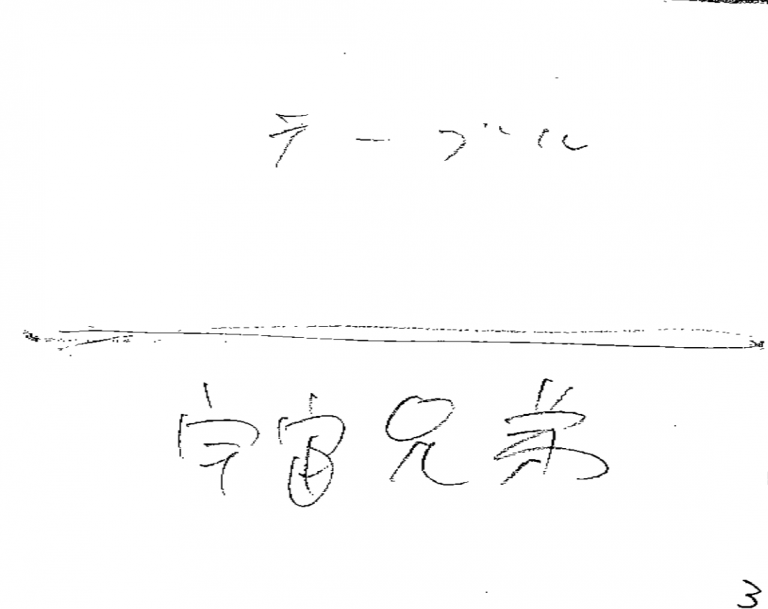 テーブル
宇宙兄弟
3